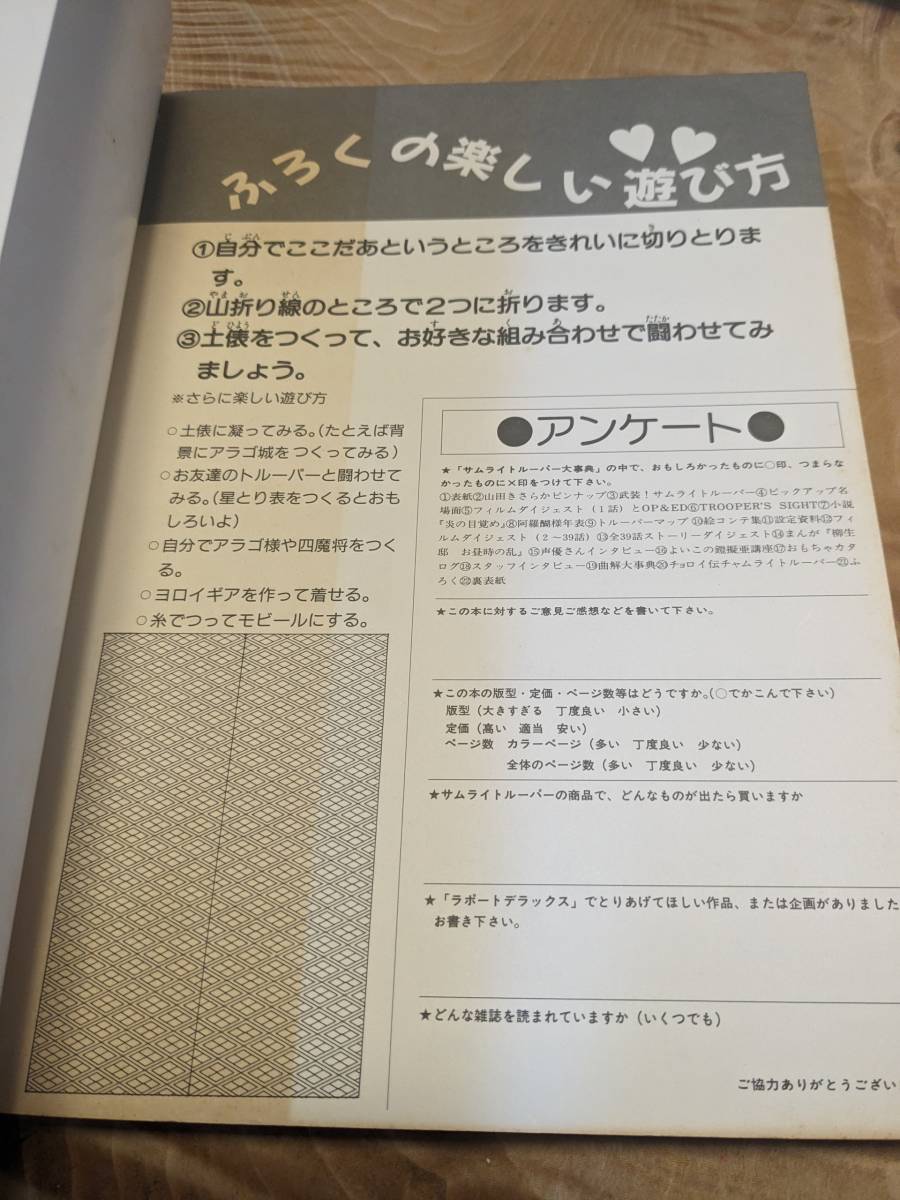 ふろくの楽しい遊び方
①自分でここだあというところをきれいに切りとりま
す。
②山折り線のところで2つに折ります。
③土俵をつくって、お好きな組み合わせで闘わせてみ
ましょう。
※さらに楽しい遊び方
○土俵に凝ってみる。(たとえば背
景にアラゴ城をつくってみる)
○お友達のトルーパーと闘わせて
みる。(星とり表をつくるとおも
しろいよ)
○自分でアラゴ様や四魔将をつく
る。
○ヨロイギアを作って着せる。
○糸でつってモビールにする。
●アンケート●
★「サムライトルーパー大事典」の中で、おもしろかったものに○印、つまらな
かったものに×印をつけて下さい。
①表紙②山田きさらかピンナップ③武装！サムライトルーパー④ピックアップ名
場面⑤フィルムダイジェスト(1話)とOP&ED⑥TROOPER'S SIGHT⑦小説
『炎の目覚め』⑧阿羅醐様年表⑨トルーパーマップ⑩絵コンテ集⑪設定資料⑫フィ
ルムダイジェスト(2〜39話)⑬全39話ストーリーダイジェスト⑭まんが『柳生
邸 お昼時の乱』⑮声優さんインタビュー⑯よいこの鎧擬亜講座⑰おもちゃカタ
ログ⑱スタッフインタビュー⑲曲解大事典⑳チョロイ伝チャムライトルーパー㉑ふ
ろく㉒裏表紙
★この本に対するご意見ご感想などを書いて下さい。
★この本の版型・定価・ページ数等はどうですか。(○でかこんで下さい)
版型(大きすぎる 丁度良い 小さい)
定価(高い 適当 安い)
ページ数 カラーページ(多い 丁度良い 少ない)
全体のページ数(多い 丁度良い 少ない)
★サムライトルーパーの商品で、どんなものが出たら買いますか
★「ラポートデラックス」でとりあげてほしい作品、または企画がありました
お書き下さい。
★どんな雑誌を読まれていますか(いくつでも)
ご協力ありがとうござい